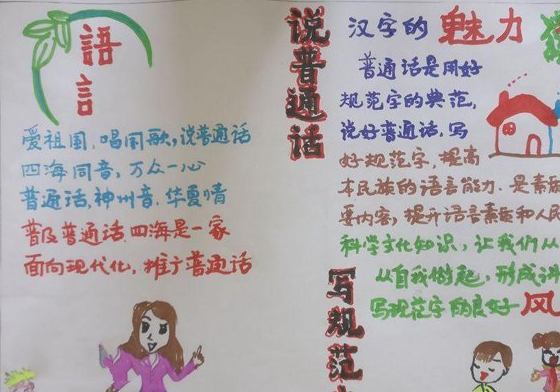 語言
爱祖国，唱国歌，说普通话
四海同音，万众一心
普通话，神州音，华夏情
普及普通话，四海是一家
面向现代化，推广普通话
说普通话
写规范
汉字的魅力
普通话是用好
规范字的典范，
说好普通话，写
好规范字，提高
本民族的语言能力，是素
要内容，提升语言素质和人民
科学文化知识，让我们从
从自我做起，形成讲
写规范字的良好风